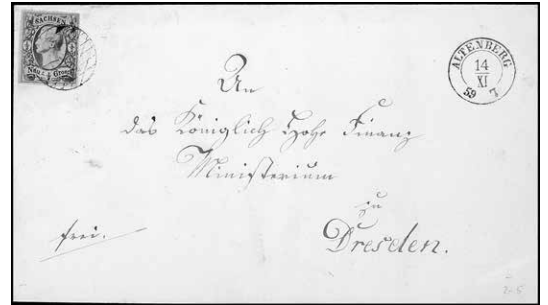 SACHSEN
Neu Grosch
ALTENBERG
14
XI
59 7
An
das Königlich Hohe Finanz
Ministerium
zu
Dresden.
frei.